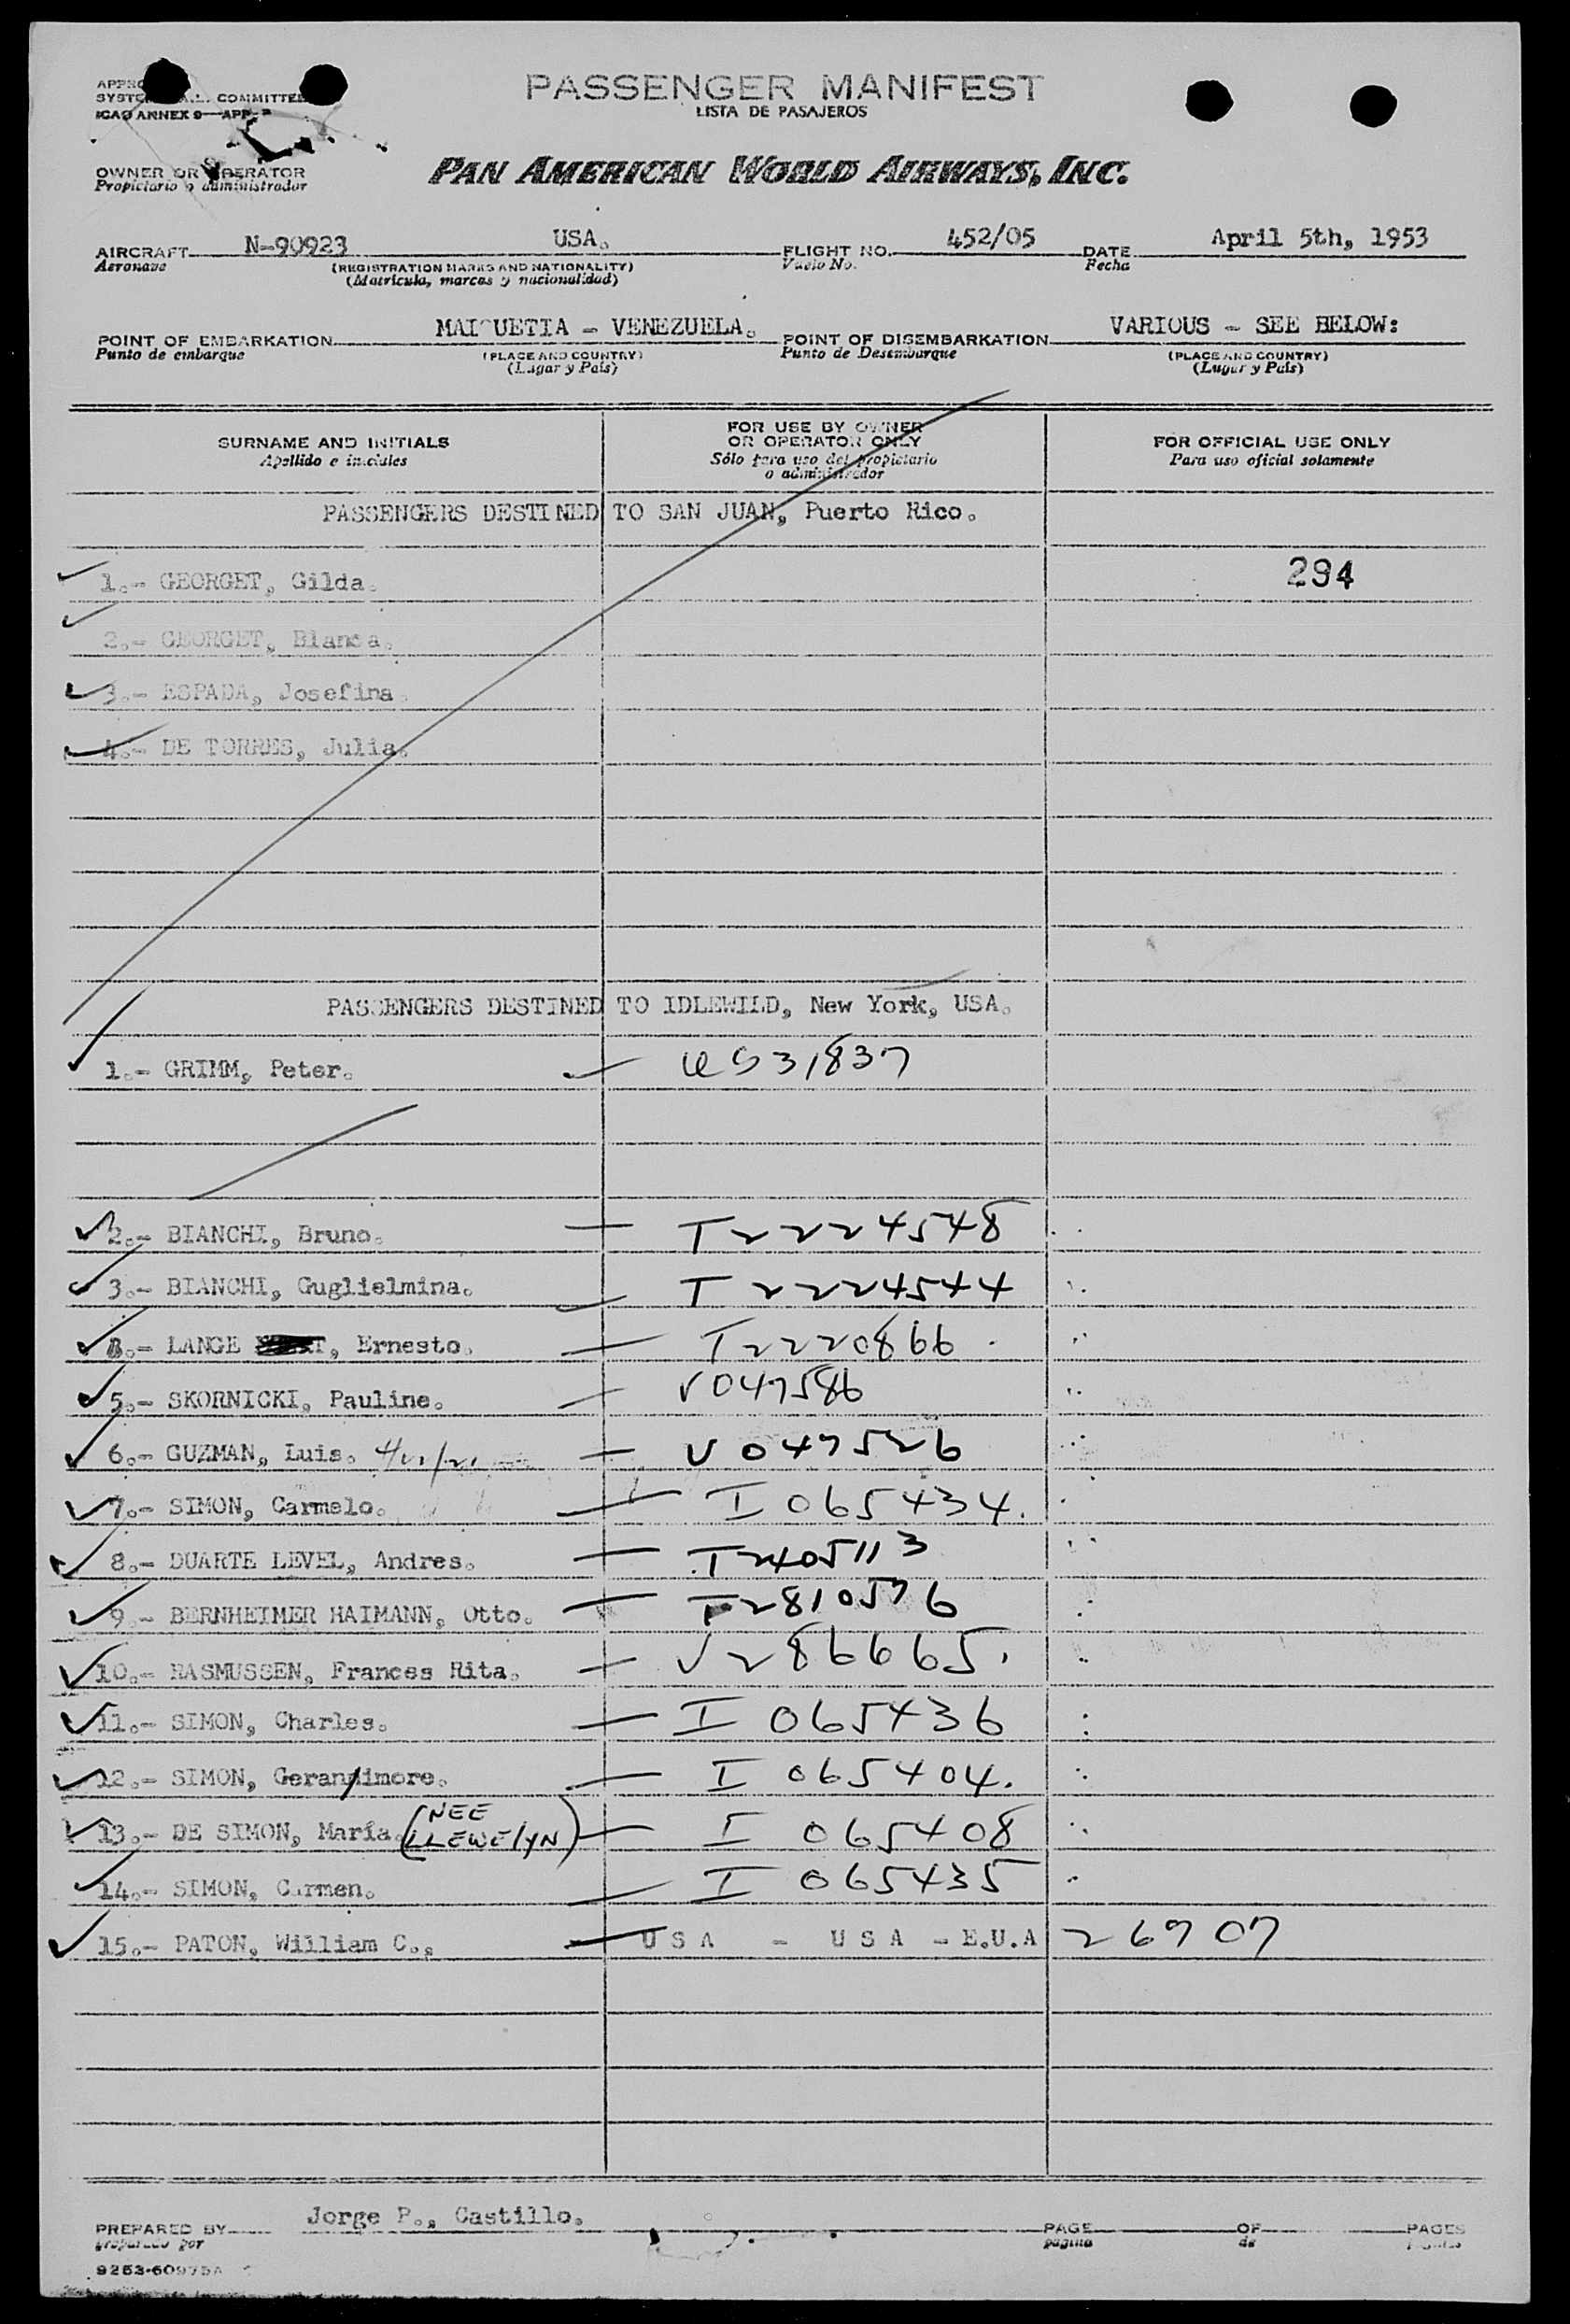 PASSENGER MANIFEST
LISTA DE PASAJEROS
ICAO ANNEX 9—APP.
OWNER OR OPERATOR
Propietario o administrador
PAN AMERICAN WORLD AIRWAYS, INC.
AIRCRAFT N-90923 USA. FLIGHT NO. 452/05 DATE April 5th, 1953
Aeronave (REGISTRATION MARKS AND NATIONALITY) Vuelo No. Fecha
(Matrícula, marcas y nacionalidad)
POINT OF EMBARKATION MAI UETIA - VENEZUELA. POINT OF DISEMBARKATION VARIOUS - SEE BELOW:
Punto de embarque (PLACE AND COUNTRY) Punto de Desembarque (PLACE AND COUNTRY)
(Lugar y País) (Lugar y País)
SURNAME AND INITIALS FOR USE BY OWNER OR OPERATOR ONLY FOR OFFICIAL USE ONLY
Apellido e iniciales Sólo para uso del propietario o administrador Para uso oficial solamente
PASSENGERS DESTINED TO SAN JUAN, Puerto Rico.
1.- GEORGET, Gilda. 294
2.- GEORGET, Blanca.
3.- ESPADA, Josefina.
4.- DE TORRES, Julia.
PASSENGERS DESTINED TO IDLEWILD, New York, USA.
1.- GRIMM, Peter. 31837
2.- BIANCHI, Bruno. T2224548
3.- BIANCHI, Guglielmina. T2224544
LANGE , Ernesto. T2220866
5.- SKORNICKI, Pauline. V047586
6.- GUZMAN, Luis. V047526
7.- SIMON, Carmelo. I065434.
8.- DUARTE LEVEL, Andres. T2405113
9.- BERNHEIMER HAIMANN, Otto. T2810576
10.- RASMUSSEN, Frances Rita. V286665.
11.- SIMON, Charles. I 065436
12.- SIMON, Geran imore. I 065404.
13.- DE SIMON, María. (NEE LLEWELYN) I 065408
14.- SIMON, Carmen. I 065435
15.- PATON, William C., U S A - U S A - E.U.A 26707
PREPARED BY Jorge P., Castillo. PAGE OF PAGES
preparado por página de